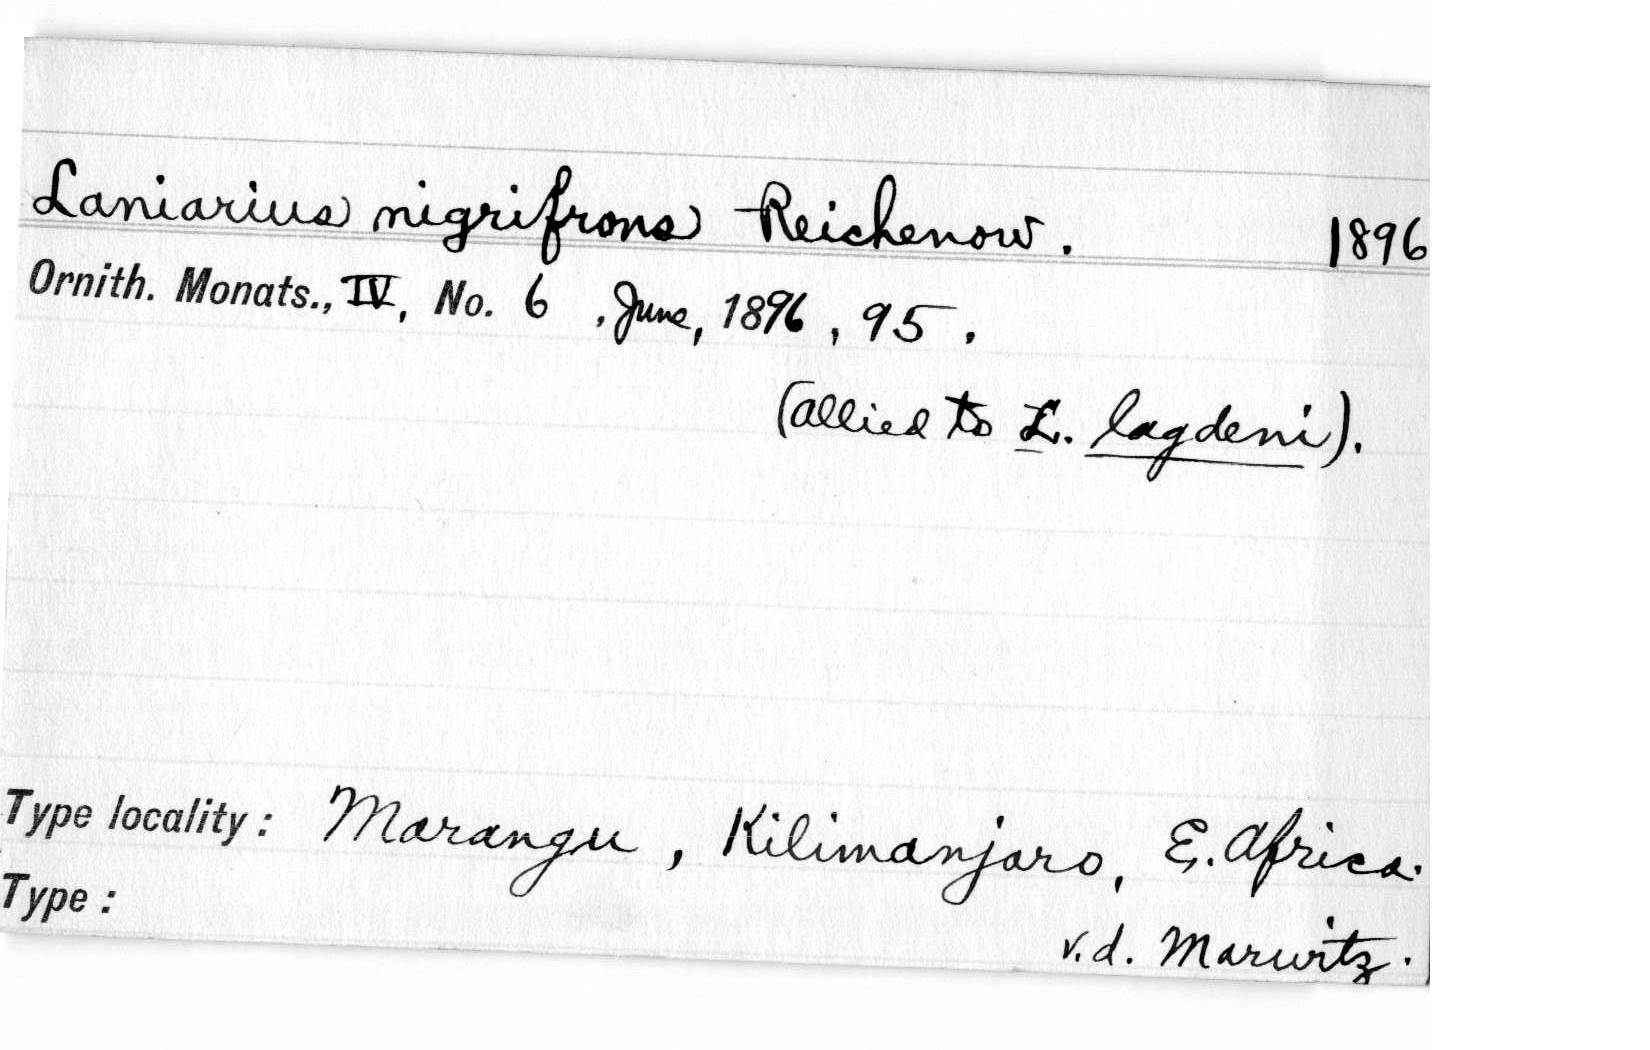 Laniarius nigrifrons Reichenow. 1896
Ornith. Monats., IV, No. 6, June, 1896, 95.
(allied to L. lagdeni).
Type locality: Marangu, Kilimanjaro, E. Africa.
Type:
v.d. Marwitz.